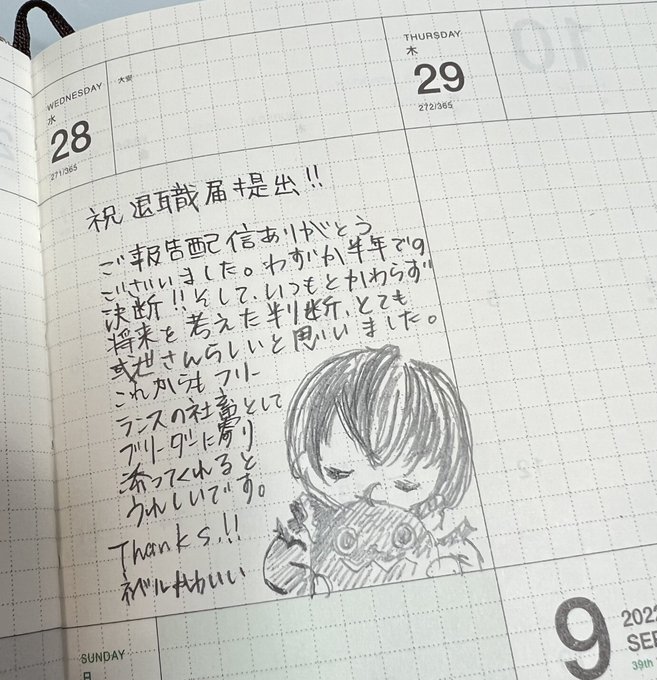 WEDNESDAY
水
28
271/365
大安
THURSDAY
木
29
272/365
10
祝 退職届提出!!
ご報告配信ありがとう
ございました。わずか半年での
決断!!そして、いつもとかわらず
将来を考えた判断、とても
或世さんらしいと思いました。
これからもフリー
ランスの社畜として
ブリーダーに寄り
添ってくれると
うれしいです。
Thanks.!!
ネベルかわいい
SUNDAY
日
9
2022
SEP
39th
12